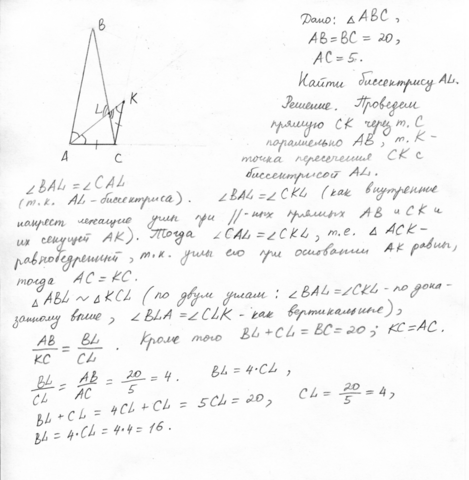 Дано: △ABC,
AB=BC=20,
AC=5.
Найти биссектрису AL.
Решение. Проведем
прямую CK через т. C
параллельно AB, т. K-
точка пересечения CK с
биссектрисой AL.
B
L
K
A
C
∠BAL=∠CAL
(т.к. AL-биссектриса). ∠BAL=∠CKL (как внутренние
накрест лежащие углы при //-ных прямых AB и CK и
их секущей AK). Тогда ∠CAL=∠CKL, т.е. △ACK-
равнобедренный, т.к. углы его при основании AK равны,
тогда AC=KC.
△ABL ~ △KCL (по двум углам: ∠BAL=∠CKL-по дока-
занному выше, ∠BLA=∠CLK-как вертикальные),
AB/KC = BL/CL. Кроме того BL+CL=BC=20; KC=AC.
BL/CL = AB/AC = 20/5 = 4. BL=4·CL,
BL+CL=4CL+CL=5CL=20, CL=20/5=4,
BL=4·CL=4·4=16.